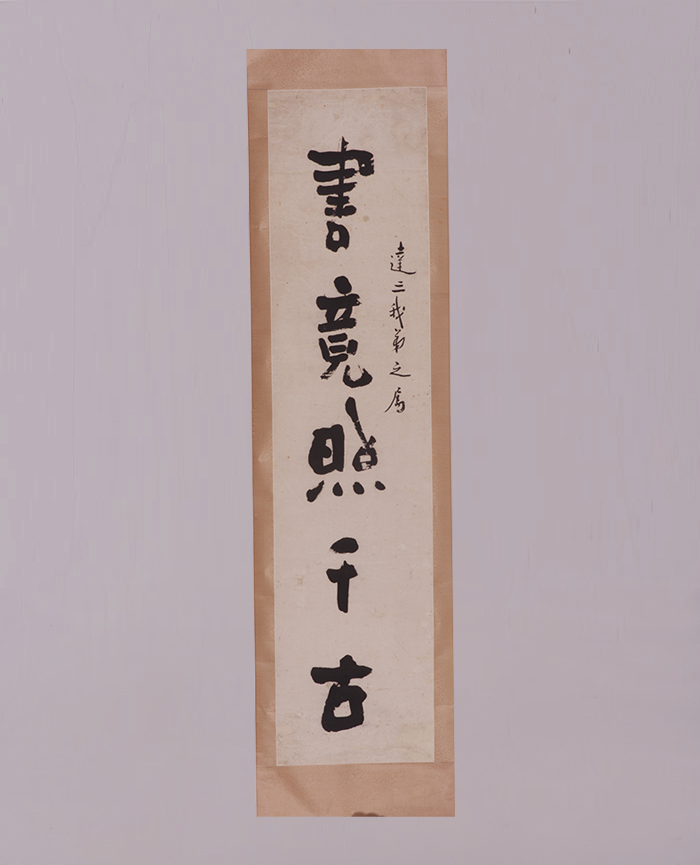 達三我弟之屬
書竟照千古